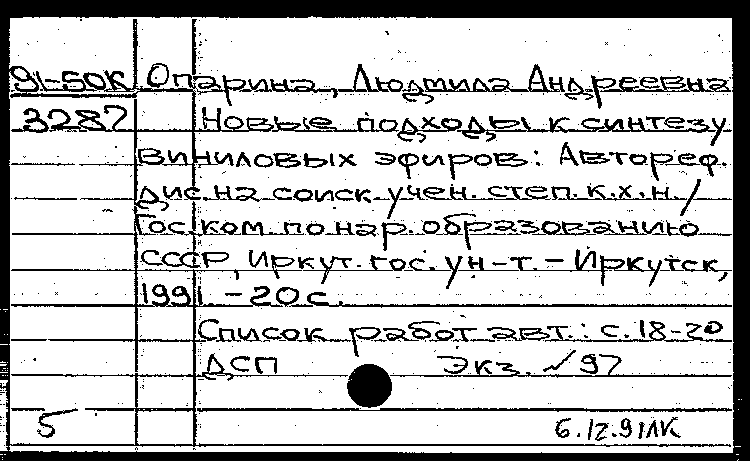 91-50К Опарина, Людмила Андреевна
3287 Новые подходы к синтезу
виниловых эфиров: Автореф.
дис. на соиск. учен. степ. к.х.н. /
Гос. ком. по нар. образованию
СССР, Иркут. гос. ун-т. – Иркутск,
1991. – 20 с.
Список работ авт.: с. 18-20
ДСП Экз. № 97
5 6.12.91 ЛК